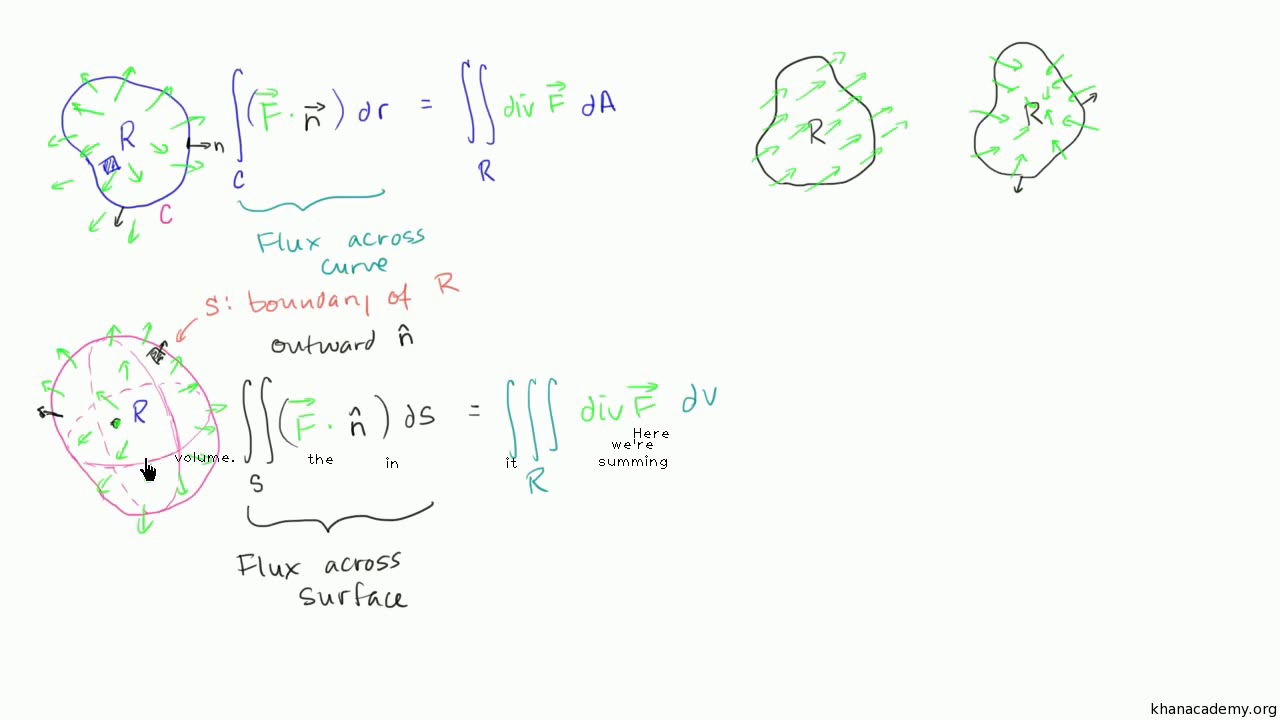 R
n
C
∫ (F⃗ · n⃗) dr = ∬ div F⃗ dA
C
R
Flux across
curve
R
R
S: boundary of R
outward n̂
R
∬ (F⃗ · n̂) dS = ∭ div F⃗ dV
Here
we're
volume. the in it summing
S
R
Flux across
surface
khanacademy.org